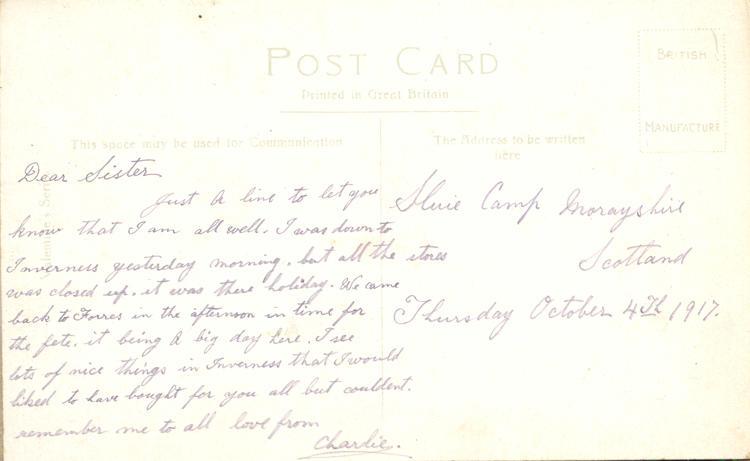 POST CARD
Printed in Great Britain
BRITISH
MANUFACTURE
This space may be used for Communication
The Address to be written
here
Dear Sister
Just a line to let you
know that I am all well. I was down to
Inverness yesterday morning. but all the stores
was closed up. it was there holiday. We came
back to Forres in the afternoon in time for
the fete. it being a big day here. I see
lots of nice things in Inverness that I would
liked to have bought for you all but couldent.
remember me to all love from
Charlie.
Sluie Camp Morayshire
Scotland
Thursday October 4th 1917.